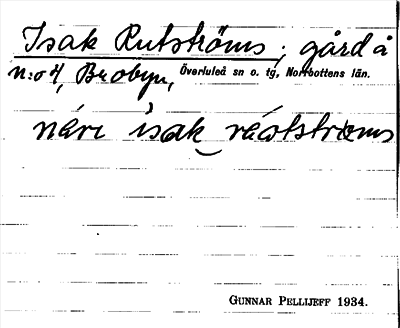 Isak Rutströms, gård å
n:o 4, Brobyn, Överluleå sn o. tg, Norrbottens län.
nári isak ráotströms
GUNNAR PELLIJEFF 1934.